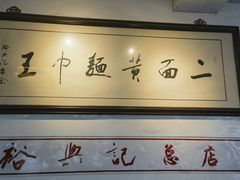 二面黄麵中王
裕興記总店